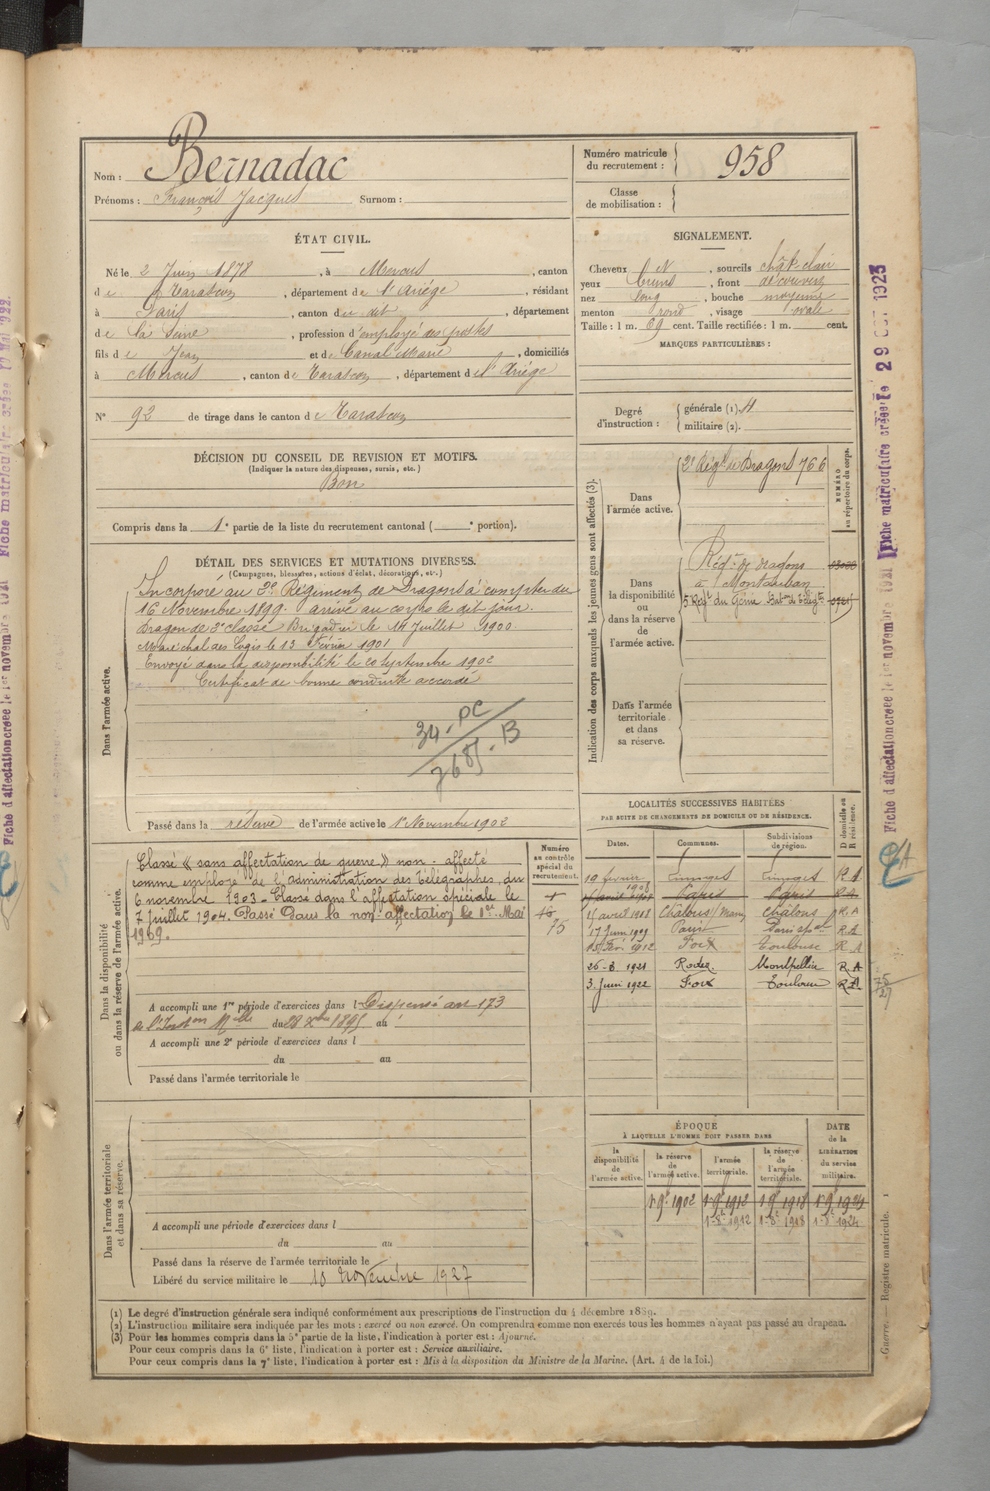 Nom : Bernadac
Prénoms : François Jacques Surnom :
Numéro matricule du recrutement : 958
Classe de mobilisation :
ÉTAT CIVIL.
Né le 2 Juin 1878, à Mercus, canton
de Tarascon, département de l'Ariège, résidant
à Paris, canton du dit, département
de la Seine, profession d'employé des postes
fils de Jean et de Canal Marie, domiciliés
à Mercus, canton de Tarascon, département de l'Ariège
N° 92 de tirage dans le canton de Tarascon
SIGNALEMENT.
Cheveux N, sourcils chât clair
yeux bruns, front découvert
nez long, bouche moyenne
menton rond, visage ovale
Taille : 1 m. 69 cent. Taille rectifiée : 1 m. cent.
MARQUES PARTICULIÈRES :
Degré d'instruction : générale (1).
militaire (2).
DÉCISION DU CONSEIL DE REVISION ET MOTIFS.
(Indiquer la nature des dispenses, sursis, etc.)
Bon
Compris dans la 1e partie de la liste du recrutement cantonal ( e portion).
DÉTAIL DES SERVICES ET MUTATIONS DIVERSES.
(Campagnes, blessures, actions d'éclat, décorations, etc.)
Dans l'armée active.
Incorporé au 2e Régiment de Dragons à compter du
16 Novembre 1899. arrivé au corps le dit jour.
Dragon de 2e classe Brigadier le 14 Juillet 1900
Maréchal des Logis le 13 Février 1901
Envoyé dans la disponibilité le 20 Septembre 1902
Certificat de bonne conduite accordé
Passé dans la réserve de l'armée active le 1er Novembre 1902
Indication des corps auxquels les jeunes gens sont affectés (3).
NUMÉRO au répertoire du corps.
Dans l'armée active.
2e Régt de Dragons 766
Dans la disponibilité ou dans la réserve de l'armée active.
Régt de dragons
à Montauban
5e Regt du Génie Batn de Télégte
Dans l'armée territoriale et dans sa réserve.
Dans la disponibilité ou dans la réserve de l'armée active.
Classé « sans affectation de guerre » non-affecté
comme employé de l'administration des Télégraphes, du
6 novembre 1903. Classé dans l'affectation spéciale le
7 juillet 1904. Passé dans la non affectation le 1er Mai
1909.
Numéro au contrôle spécial du recrutement.
75
A accompli une 1re période d'exercices dans l Dispensé art 173
de l'Inston Mlle du 28 Xbre 1895 au
A accompli une 2e période d'exercices dans l
du au
Passé dans l'armée territoriale le
LOCALITÉS SUCCESSIVES HABITÉES
PAR SUITE DE CHANGEMENTS DE DOMICILE OU DE RÉSIDENCE.
Dates. Communes. Subdivisions de région. D domicile ou R résidence.
Limoges Limoges R.A
Paris Paris R.A
4 avril 1908 Châlons s/ Marne Châlons R.A
17 Juin 1909 Paris R.A
Foix Toulouse R.A
26-8 1921 Rodez Montpellier R.A
3 Juin 1922 Foix Toulouse R.A
Dans l'armée territoriale et dans sa réserve.
A accompli une période d'exercices dans l
du au
Passé dans la réserve de l'armée territoriale le
Libéré du service militaire le 10 Novembre 1927
ÉPOQUE
À LAQUELLE L'HOMME DOIT PASSER DANS
la disponibilité de l'armée active. la réserve de l'armée active. l'armée territoriale. la réserve de l'armée territoriale. DATE de la LIBÉRATION du service militaire.
1 9e 1902 1 9e 1912 1 9e 1918 1 9e 1924
(1) Le degré d'instruction générale sera indiqué conformément aux prescriptions de l'instruction du 4 décembre 1889.
(2) L'instruction militaire sera indiquée par les mots : exercé ou non exercé. On comprendra comme non exercés tous les hommes n'ayant pas passé au drapeau.
(3) Pour les hommes compris dans la 5e partie de la liste, l'indication à porter est : Ajourné.
Pour ceux compris dans la 6e liste, l'indication à porter est : Service auxiliaire.
Pour ceux compris dans la 7e liste, l'indication à porter est : Mis à la disposition du Ministre de la Marine. (Art. 4 de la loi.)
Fiche matriculaire créée le 29 OCT 1923
Fiche d'affectation créée le 1er novembre 1921
Guerre. Registre matricule. 1